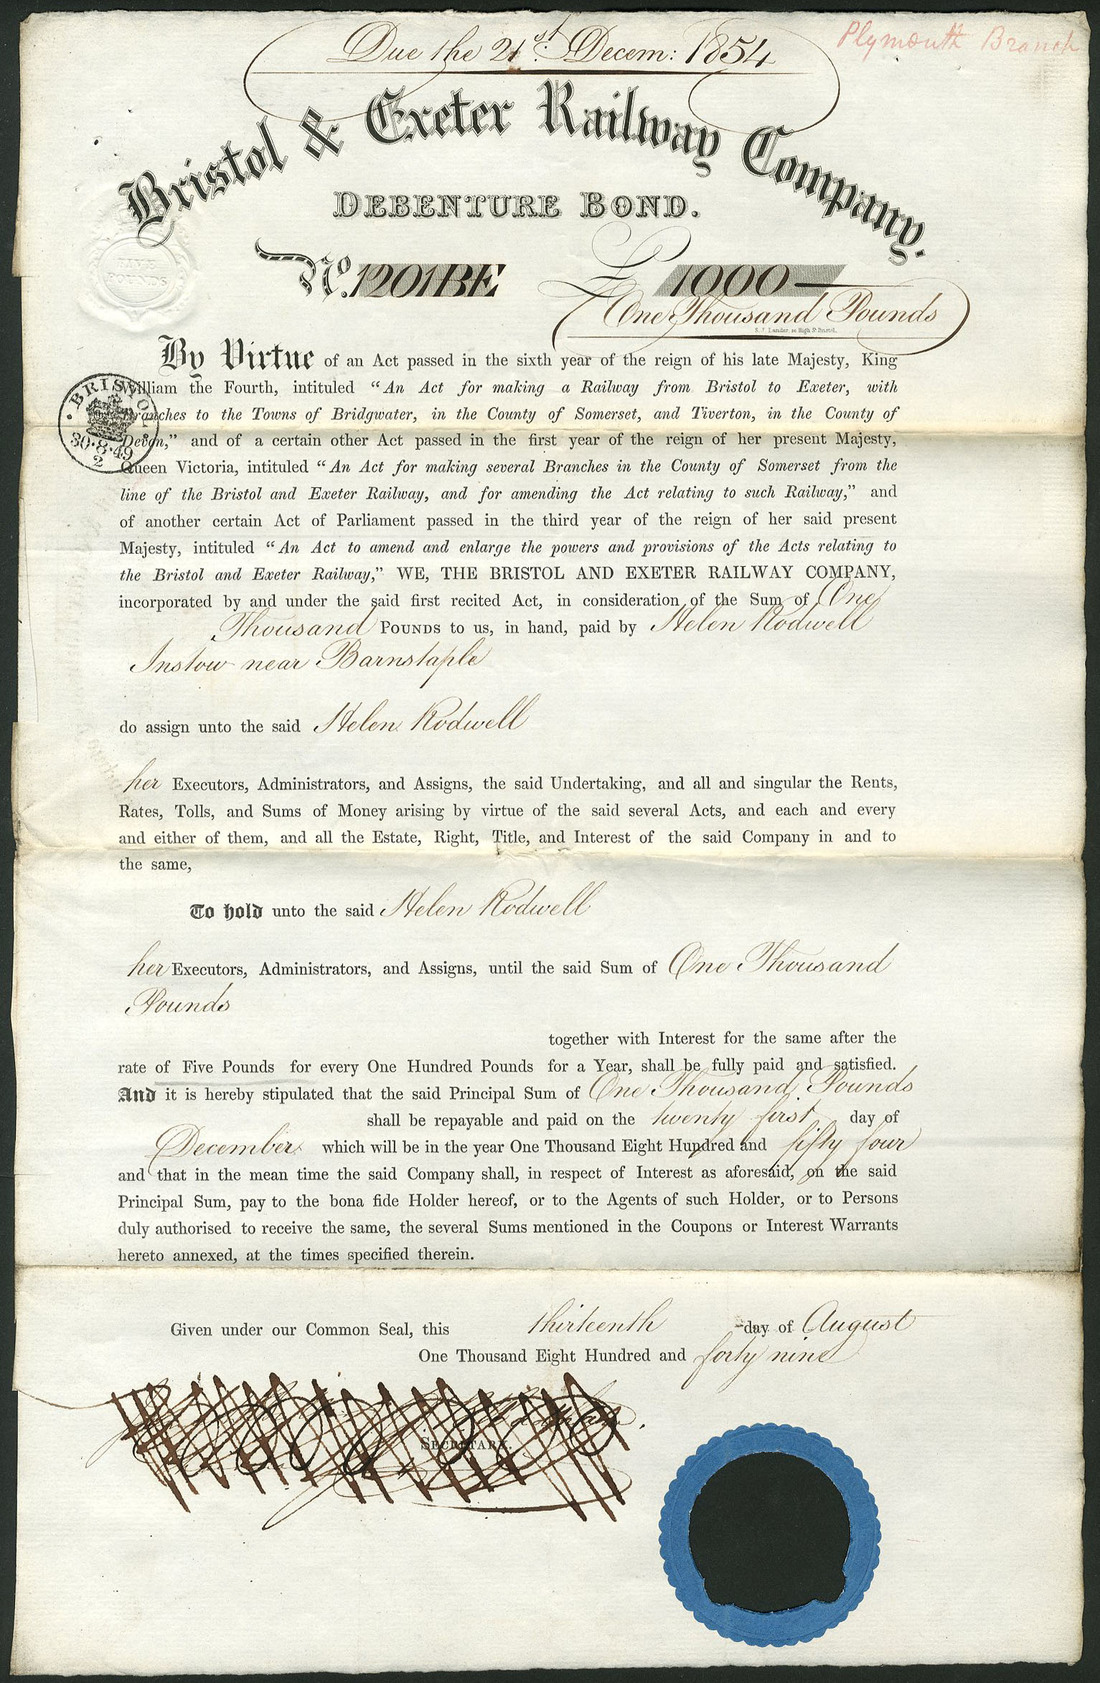 Due the 21st. Decem: 1854
Plymouth Branch
Bristol & Exeter Railway Company.
DEBENTURE BOND.
FIVE
POUNDS
No. 1201BE £1000—
One Thousand Pounds
By Virtue of an Act passed in the sixth year of the reign of his late Majesty, King
William the Fourth, intituled “An Act for making a Railway from Bristol to Exeter, with
Branches to the Towns of Bridgwater, in the County of Somerset, and Tiverton, in the County of
Devon,” and of a certain other Act passed in the first year of the reign of her present Majesty,
Queen Victoria, intituled “An Act for making several Branches in the County of Somerset from the
line of the Bristol and Exeter Railway, and for amending the Act relating to such Railway,” and
of another certain Act of Parliament passed in the third year of the reign of her said present
Majesty, intituled “An Act to amend and enlarge the powers and provisions of the Acts relating to
the Bristol and Exeter Railway,” WE, THE BRISTOL AND EXETER RAILWAY COMPANY,
incorporated by and under the said first recited Act, in consideration of the Sum of One
Thousand POUNDS to us, in hand, paid by Helen Rodwell
Instow near Barnstaple
BRISTOL
30·8·49
2
do assign unto the said Helen Rodwell
her Executors, Administrators, and Assigns, the said Undertaking, and all and singular the Rents,
Rates, Tolls, and Sums of Money arising by virtue of the said several Acts, and each and every
and either of them, and all the Estate, Right, Title, and Interest of the said Company in and to
the same,
To hold unto the said Helen Rodwell
her Executors, Administrators, and Assigns, until the said Sum of One Thousand
Pounds
together with Interest for the same after the
rate of Five Pounds for every One Hundred Pounds for a Year, shall be fully paid and satisfied.
And it is hereby stipulated that the said Principal Sum of One Thousand Pounds
shall be repayable and paid on the twenty first day of
December which will be in the year One Thousand Eight Hundred and fifty four
and that in the mean time the said Company shall, in respect of Interest as aforesaid, on the said
Principal Sum, pay to the bona fide Holder hereof, or to the Agents of such Holder, or to Persons
duly authorised to receive the same, the several Sums mentioned in the Coupons or Interest Warrants
hereto annexed, at the times specified therein.
Given under our Common Seal, this thirteenth day of August
One Thousand Eight Hundred and forty nine
SECRETARY.